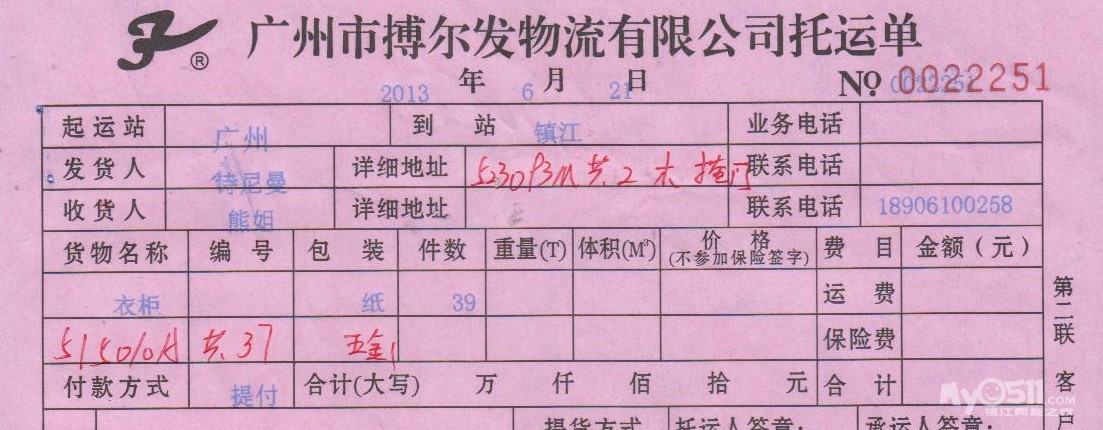 广州市搏尔发物流有限公司托运单
2013年6月21日 No 0022251 0022251
起运站 广州 到站 镇江 业务电话
发货人 诗尼曼 详细地址 共2 木 掩门 联系电话
收货人 熊姐 详细地址 联系电话 18906100258
货物名称 编号 包装 件数 重量(T) 体积(M³) 价格(不参加保险签字) 费目 金额(元)
衣柜 纸 39 运费
共37 五金1 保险费
付款方式 提付 合计(大写) 万 仟 佰 拾 元 合计
提货方式 托运人签章: 承运人签章:
第二联 客户
My0511.COM
镇江网友之家